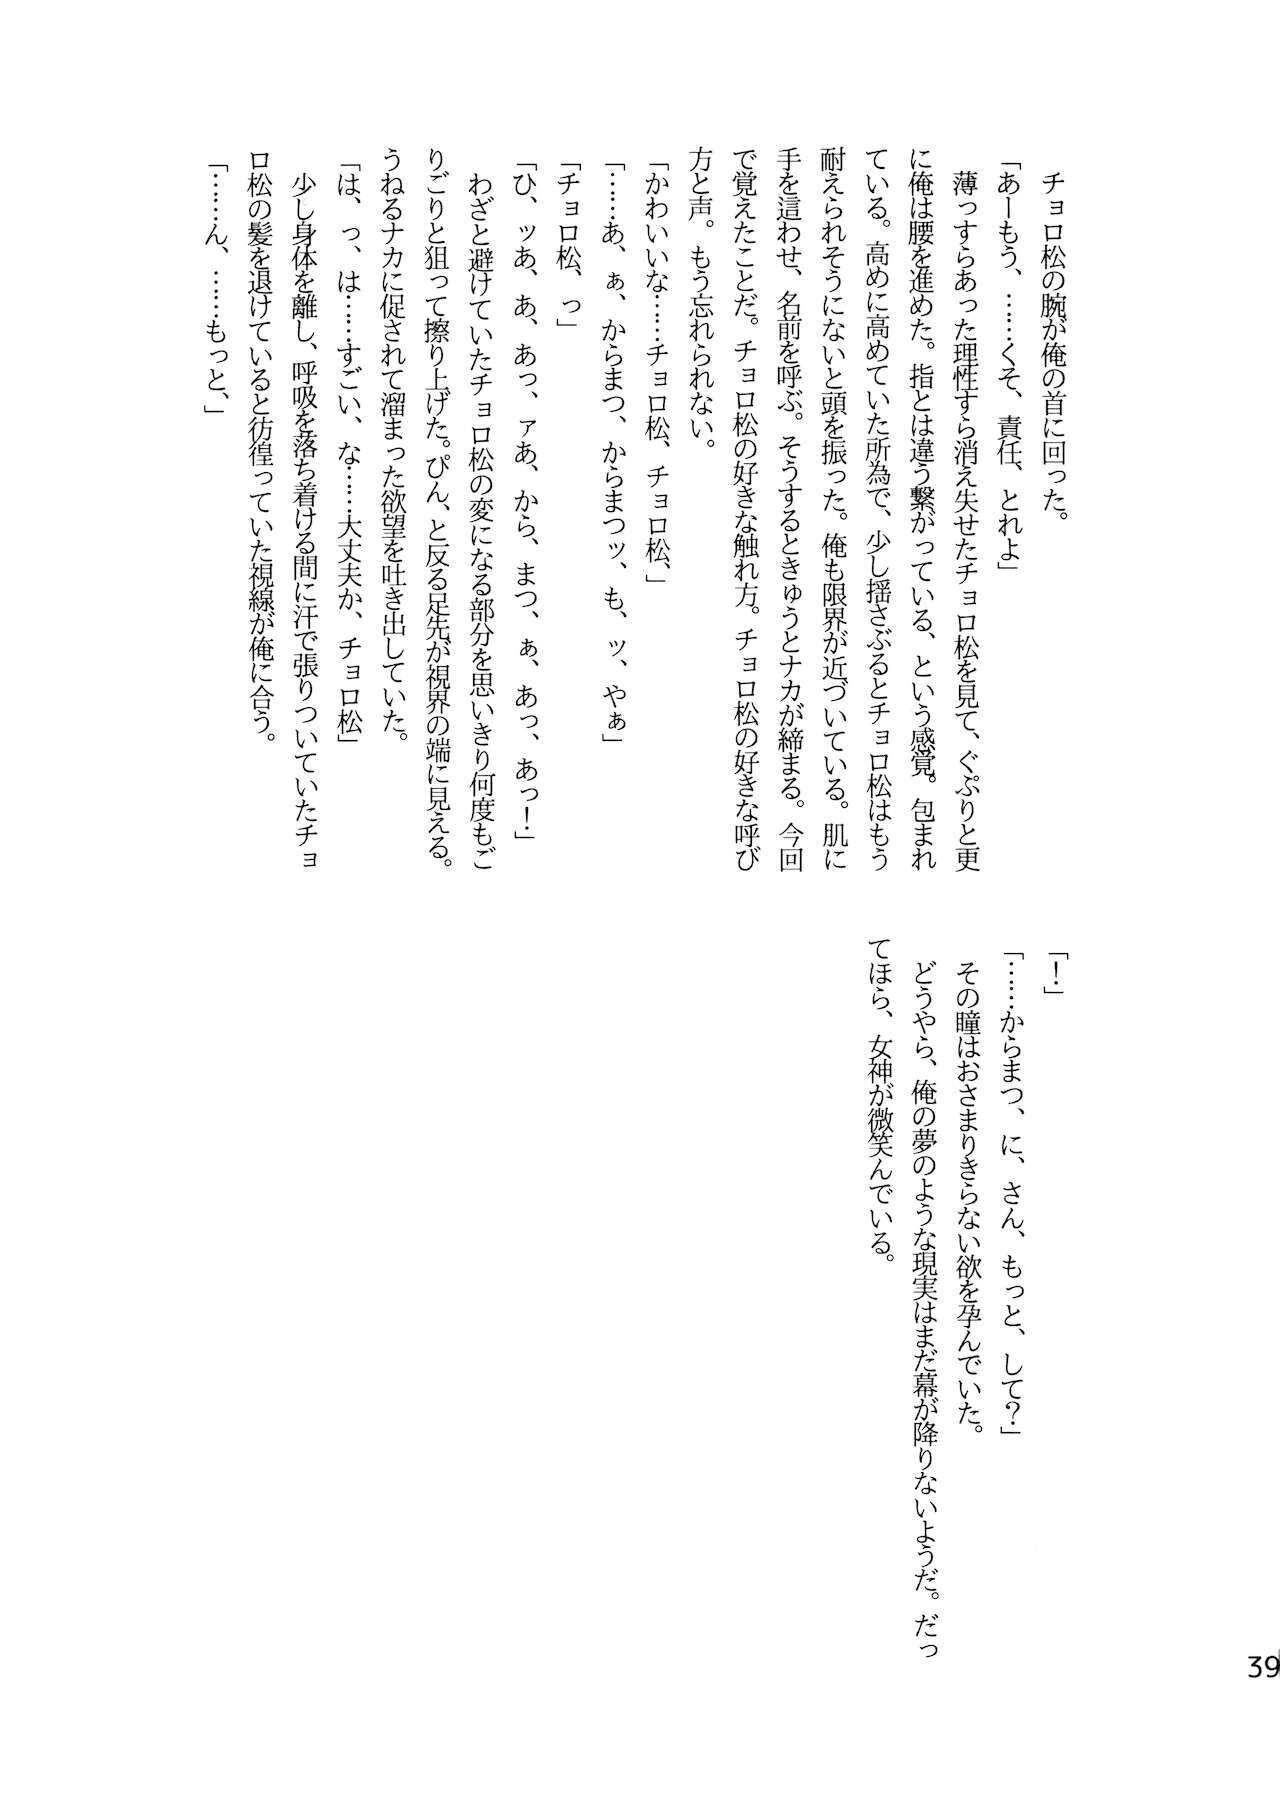 チョロ松の腕が俺の首に回った。
「あーもう、……くそ、責任、とれよ」
薄っすらあった理性すら消え失せたチョロ松を見て、ぐぷりと更
に俺は腰を進めた。指とは違う繋がっている、という感覚。包まれ
ている。高めに高めていた所為で、少し揺さぶるとチョロ松はもう
耐えられそうにないと頭を振った。俺も限界が近づいている。肌に
手を這わせ、名前を呼ぶ。そうするときゅうとナカが締まる。今回
で覚えたことだ。チョロ松の好きな触れ方。チョロ松の好きな呼び
方と声。もう忘れられない。
「かわいいな……チョロ松、チョロ松、」
「……あ、ぁ、からまつ、からまつッ、も、ッ、やぁ」
「チョロ松、っ」
「ひ、ッあ、あ、あっ、ァあ、から、まつ、ぁ、あっ、あっ！」
わざと避けていたチョロ松の変になる部分を思いきり何度もご
りごりと狙って擦り上げた。ぴん、と反る足先が視界の端に見える。
うねるナカに促されて溜まった欲望を吐き出していた。
「は、っ、は……すごい、な……大丈夫か、チョロ松」
少し身体を離し、呼吸を落ち着ける間に汗で張りついていたチョ
ロ松の髪を退けていると彷徨っていた視線が俺に合う。
「……ん、……もっと、」
「！」
「……からまつ、に、さん、もっと、して？」
その瞳はおさまりきらない欲を孕んでいた。
どうやら、俺の夢のような現実はまだ幕が降りないようだ。だっ
てほら、女神が微笑んでいる。
39